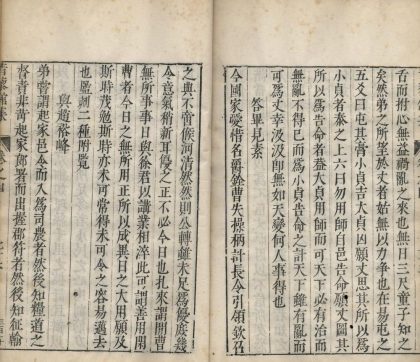 舌而拊心無益戡亂之來也無日三尺童子而知之
矣然弟之所望於丈者始無以力爭也在易屯之
五爻曰屯其膏小貞吉大貞凶願丈思其所以為
小貞者泰之上六曰勿用師自邑告命願丈圖其
所以為告命者蓋大貞用師而可天下必有治而
無亂不得已而為小貞告命之計天下雖有亂而
可為丈幸汲汲即無如天變何人事得也
答畢見素
今國家愛惜名爵銓曹失操柄計長今引領欽召
之典不啻俟河清然然則公轉離未足為優庶幾
今意氣稍新耳優之正不必今日也扎來謂開曹
無所事事日與徐君以講業相淬此可謂善用開
曹者今日之無所用正所以成異日之大用願及
斯時茂勉斯時亦未可常得未可令之容易邁去
也監刻二種附覧
與趙裕峰
弟嘗謂起家邑令而入為司農者然後知糧道之
督責非苛起家郎署而出握郡符者然後知征輸